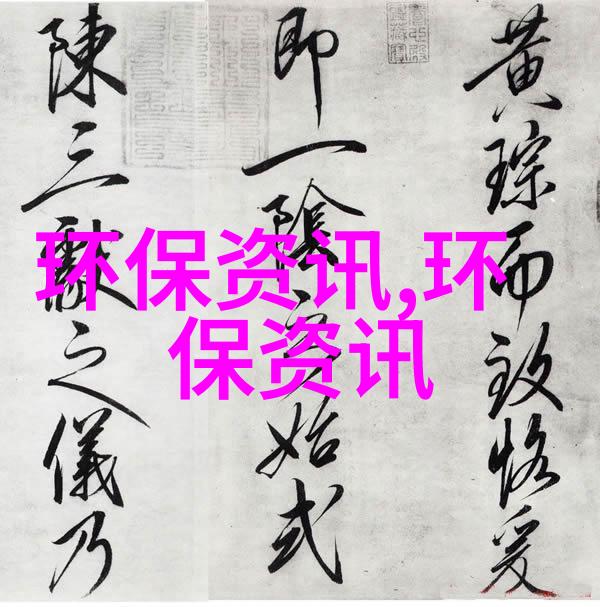 黄琮而致恪爰
即一陰之始式
陳三獻之儀乃
环保资讯,环
保资讯